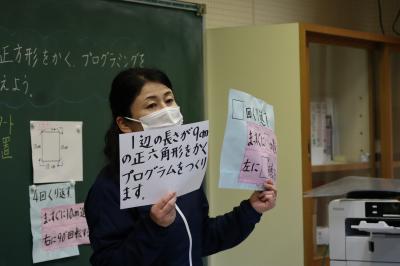 正方形をかく、プログラミングを
えよう。
1辺の長さが9cm
の正六角形をかく
プログラムをつくり
ます。
回くり返す
まっすぐに
左に
4回くり返す
まっすぐに10cm進
右に90°回転す